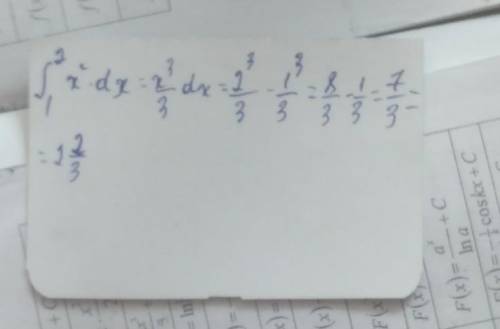 ∫₁² x² · dx = x³/3 dx = 2³/3 - 1³/3 = 8/3 - 1/3 = 7/3 =
= 2 2/3
F(x) = aˣ/ln a + C
coskx + C